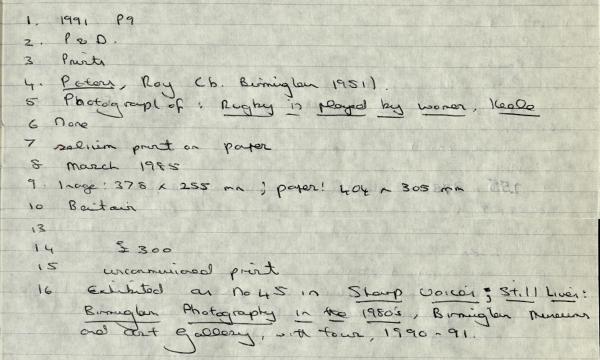 1. 1991 P9
2. P & D.
3 Prints
4. Peters, Roy (b. Birmingham 1951).
5 Photograph of: Rugby is played by women, Keele
6 None
7 selenium print on paper
8 March 1985
9. Image: 378 x 255 mm; paper: 404 x 305 mm
10 Britain
13
14 £300
15 uncommissioned print
16 Exhibited as no 45 in Sharp Voices; Still Lives:
Birmingham Photography in the 1980's, Birmingham Museums
and Art Gallery, with tour, 1990-91.